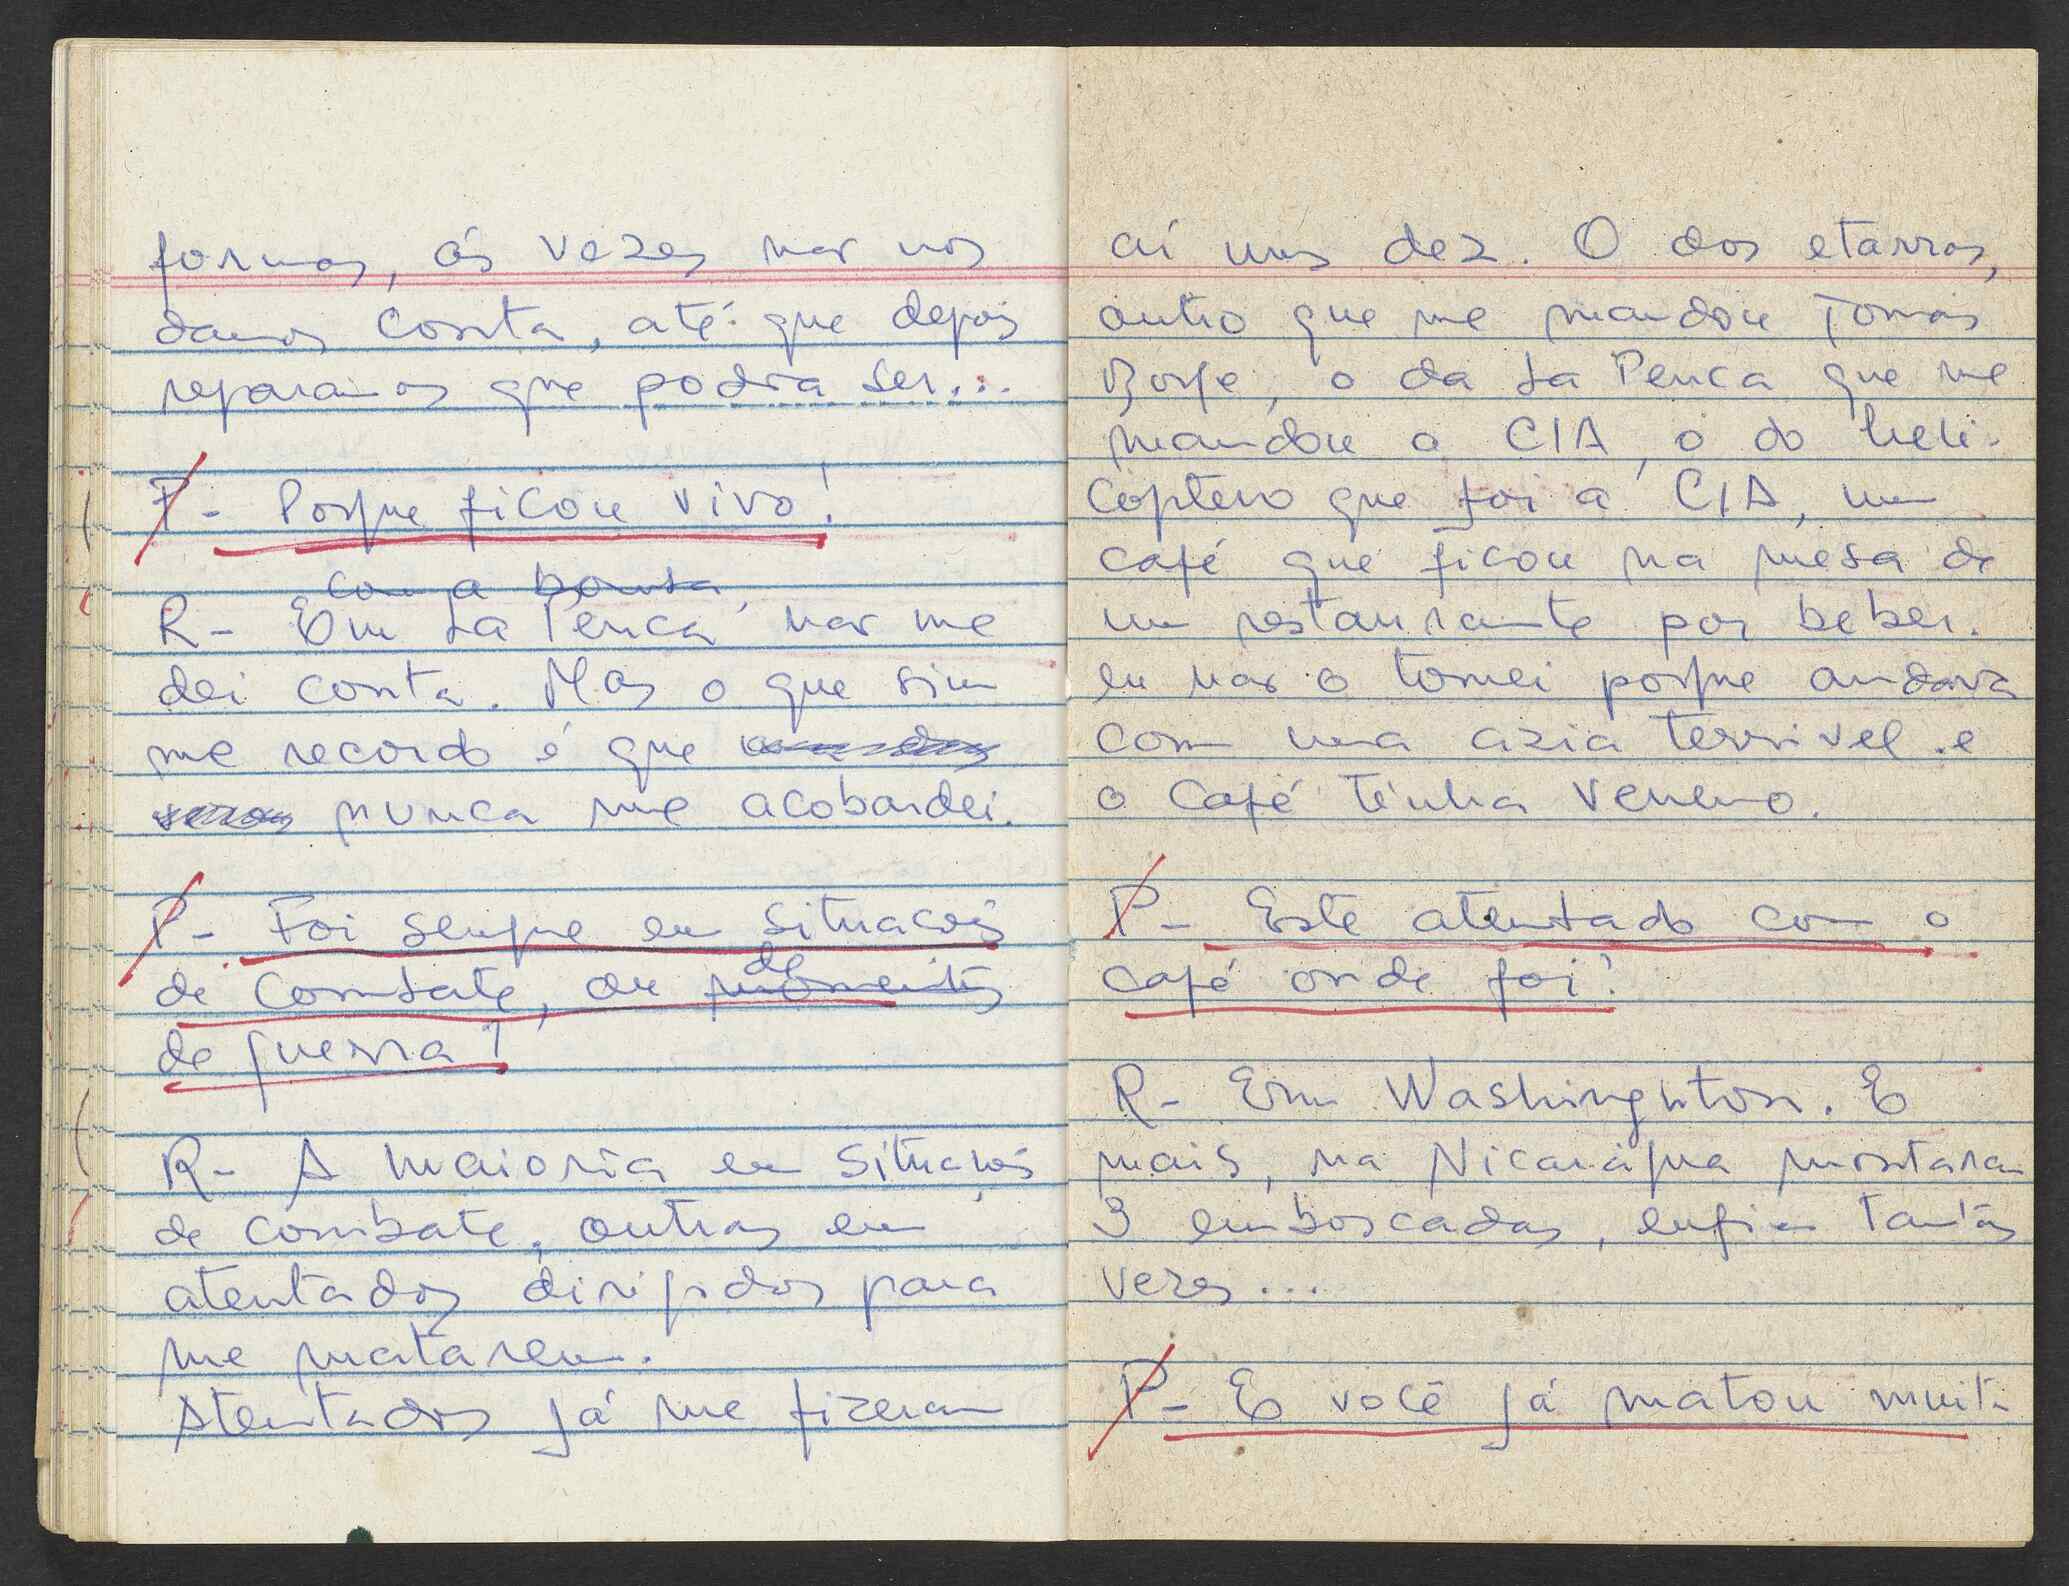 formas, ás vezes nao nos
damos conta, até que depois
reparamos que podia ser...
P- Porque ficou vivo?
com a bomba
R- Em La Penca nao me
dei conta. Mas o que sim
me recordo é que
nunca me acobardei.
P- Foi sempre em situações
de combate, ou momentos
de
de guerra?
R- A maioria em situações
de combate, outras em
atentados dirigidos para
me matarem.
Atentados já me fizeram
aí uns dez. O dos etarras,
outro que me mandou Tomas
Borge, o da La Penca que me
mandou a CIA, o do heli-
coptero que foi a CIA, um
café que ficou na mesa de
um restaurante por beber.
eu nao o tomei porque andava
com uma azia terrivel e
o café tinha veneno.
P- Este atentado com o
café onde foi?
R- Em Washinghton. E
mais, na Nicarágua montaram
3 emboscadas, enfim tantas
vezes...
P- E você já matou muita